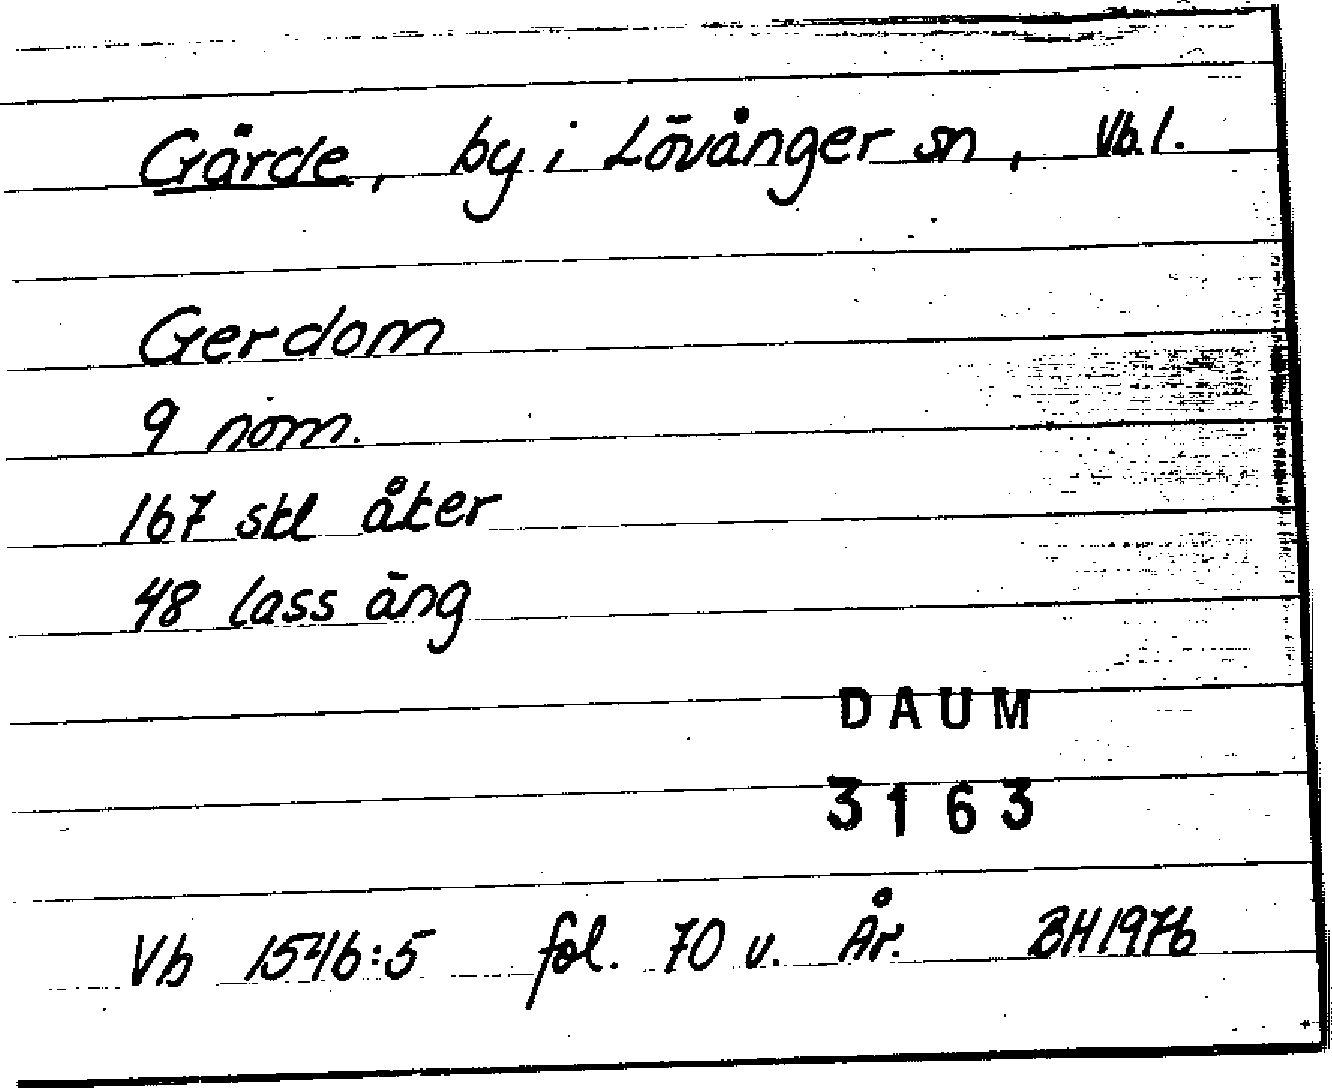 Gärde, by i Lövånger sn, Vb.l.
Gerdom
9 nom.
167 skl åker
48 lass äng
DAUM
3163
Vb 1546:5 fol. 70 v. År. BH1976